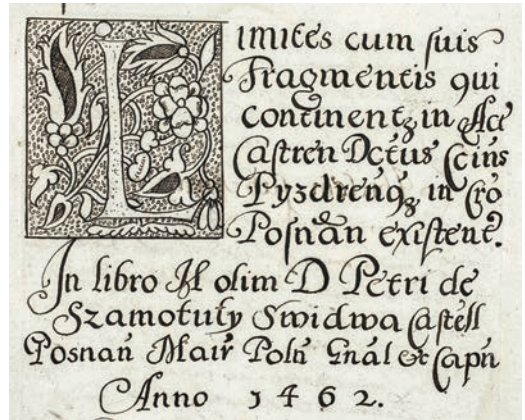 Limites cum suis
Fragmentis qui
continentꝫ in Act
Castren Dctus Ccius
Pyzdrenqꝫ in Cro
Posnan existent.
In libro M olim D Petri de
Szamotuły Swidwa Castell
Posnań Mair Poln Gnal et Capn
Anno 1462.